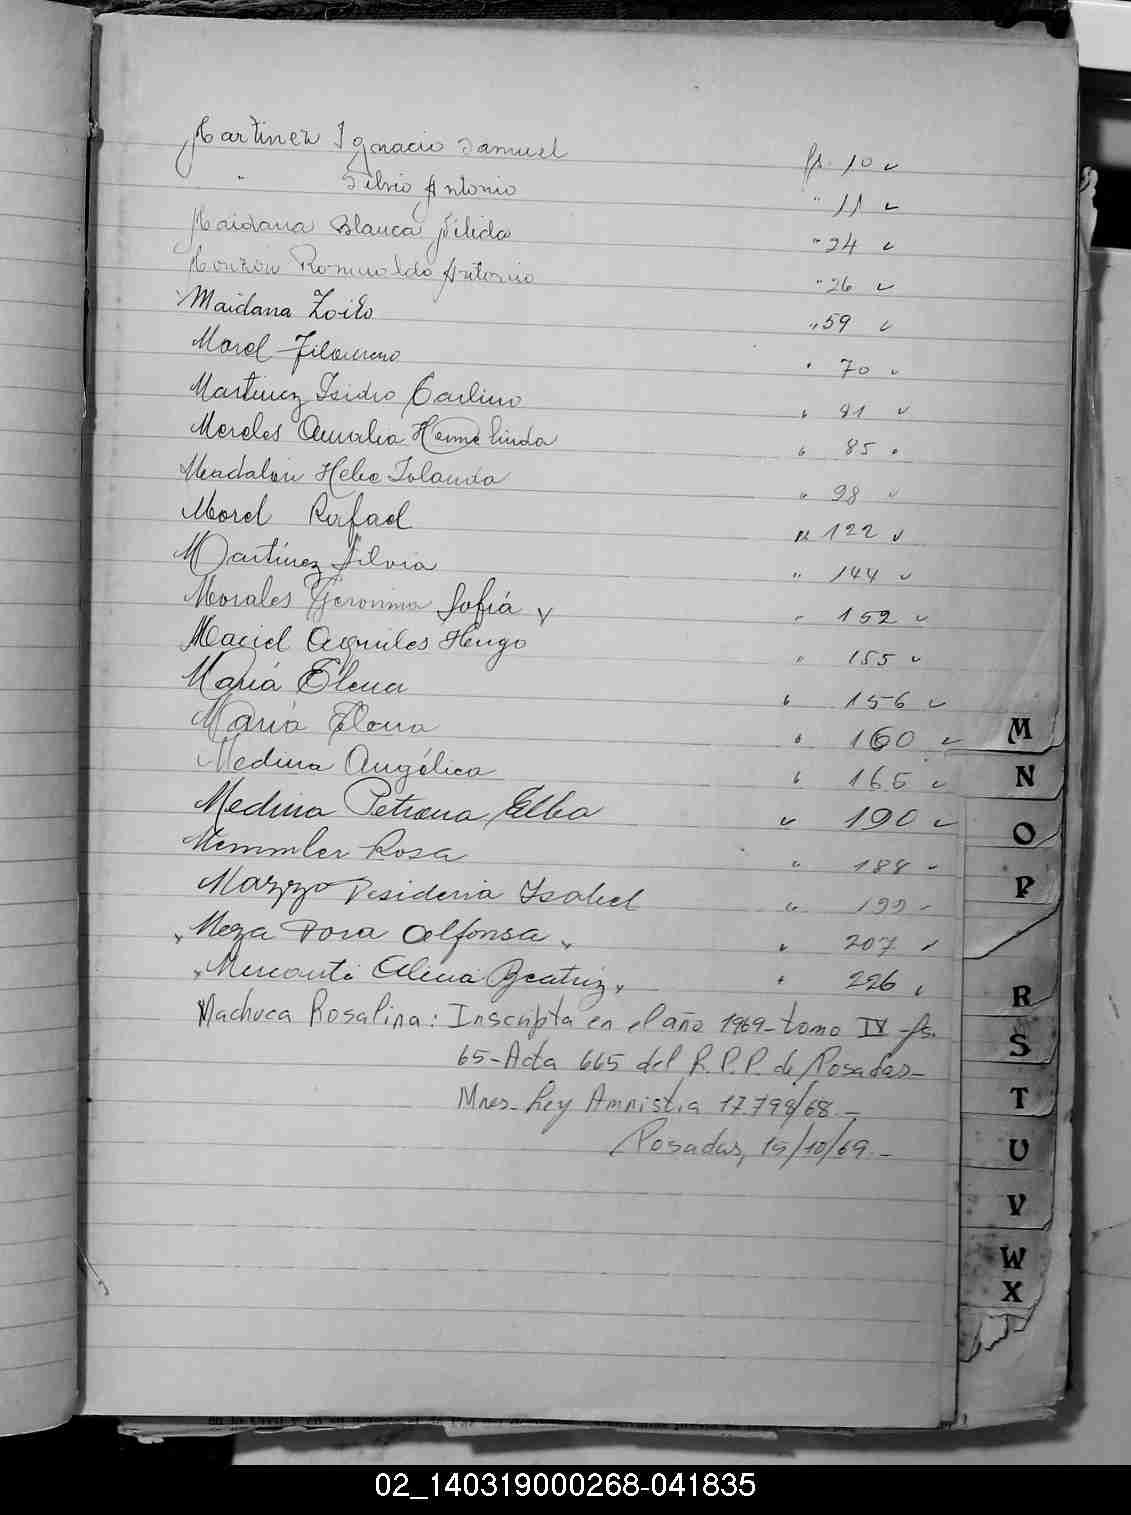 Martinez Ignacio Samuel fs. 10 ✓
" Silvio Antonio " 11 ✓
Maidana Blanca Nélida " 24 ✓
Monzón Romualdo Antonio " 26 ✓
Maidana Zoilo " 59 ✓
Morel Filomeno " 70 ✓
Martinez Isidro Carlino " 81 ✓
Mereles Amalia Hermelinda " 85
Hebe Iolanda " 98 ✓
Morel Rafael " 122 ✓
Martínez Silvia " 144 ✓
Morales Geronima Sofiá " 152 ✓
Maciel Aquiles Hugo " 155 ✓
Mariá Elena " 156 ✓
Mariá Elena " 160 ✓
Medina Angélica " 165 ✓
Medina Petrona Elba " 190 ✓
Memmler Rosa " 188 ✓
Mazzo Desideria Isabel " 199
Meza Dora Alfonsa " 207 ✓
Mercanti Beatriz " 226
Machuca Rosalina: Inscripta en el año 1969 - tomo IV - fs.
65 - Acta 665 del R.P.P. de Posadas -
Mnes - Ley Amnistia 17.798/68 -
Posadas, 15/10/69 -
M
N
O
P
R
S
T
U
V
W
X
02_140319000268-041835